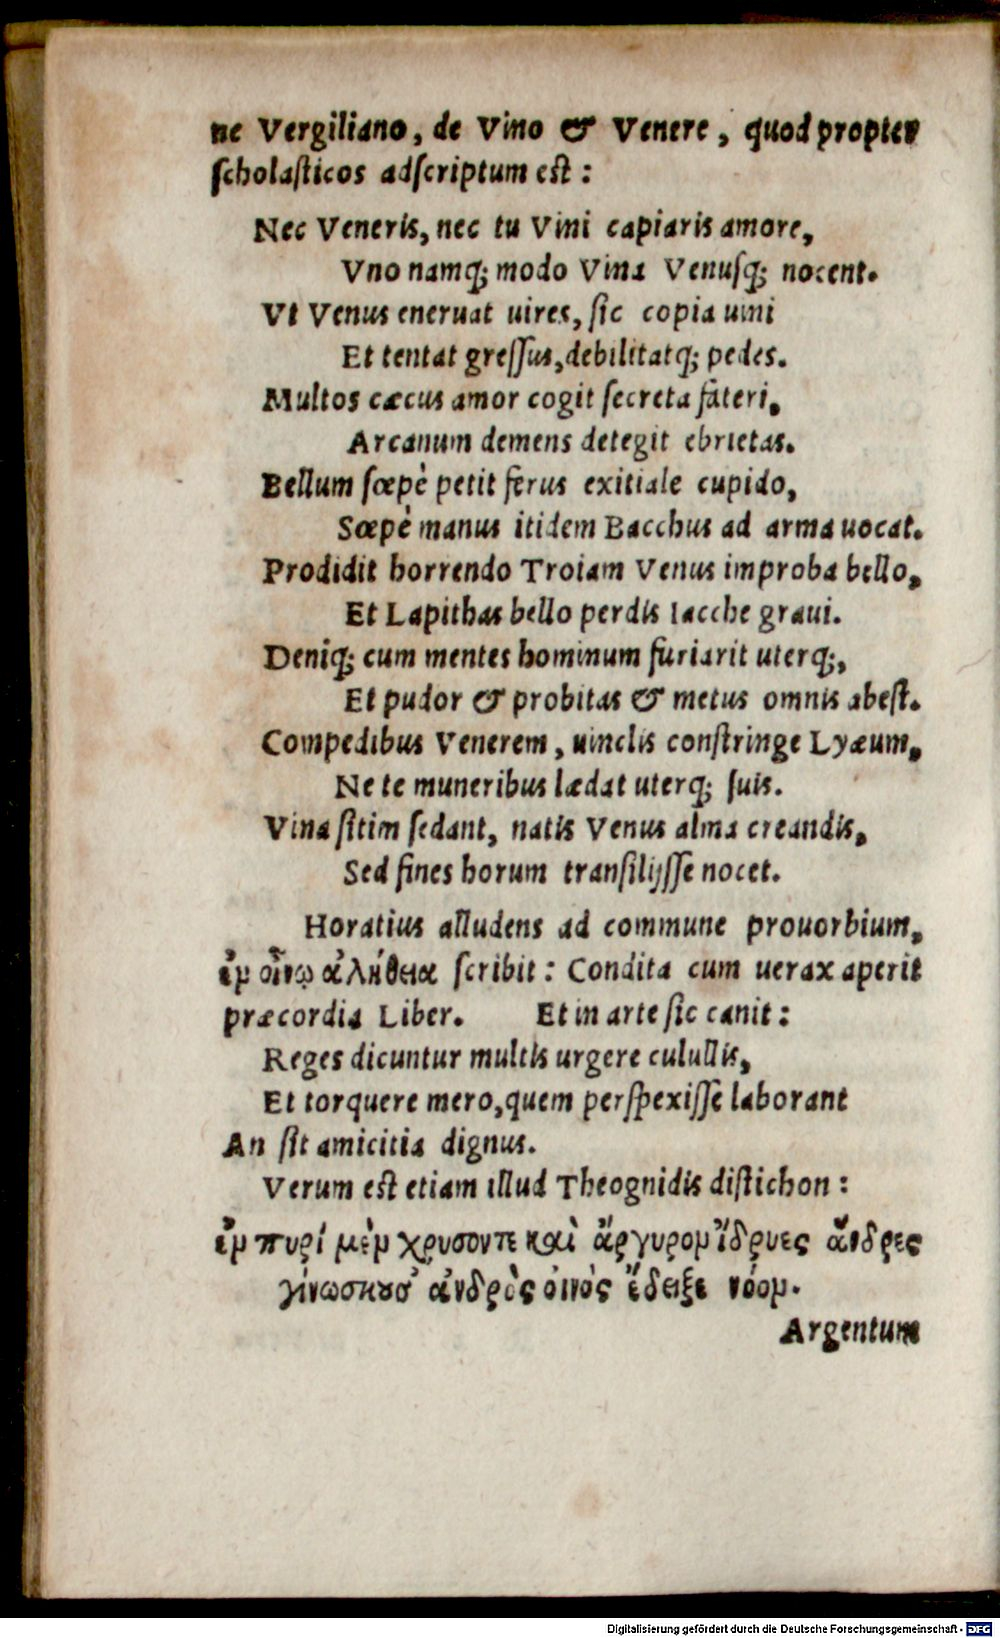 ne Vergiliano, de Vino & Venere, quod propter
scholasticos adscriptum est:
Nec Veneris, nec tu Vini capiaris amore,
Vno namq; modo Vina Venusq; nocent.
Vt Venus eneruat uires, sic copia uini
Et tentat gressus, debilitatq; pedes.
Multos cæcus amor cogit secreta fateri,
Arcanum demens detegit ebrietas.
Bellum sœpè petit ferus exitiale cupido,
Sœpè manus itidem Bacchus ad arma uocat.
Prodidit horrendo Troiam Venus improba bello,
Et Lapithas bello perdis Iacche graui.
Deniq; cum mentes hominum furiarit uterq;,
Et pudor & probitas & metus omnis abest.
Compedibus Venerem, uinclis constringe Lyæum,
Ne te muneribus lædat uterq; suis.
Vina sitim sedant, natis Venus alma creandis,
Sed fines horum transilijsse nocet.
Horatius alludens ad commune prouorbium,
ἐμ οἴνῳ ἀλήθεια scribit: Condita cum uerax aperit
præcordia Liber. Et in arte sic canit:
Reges dicuntur multis urgere culullis,
Et torquere mero, quem perspexisse laborant
An sit amicitia dignus.
Verum est etiam illud Theognidis distichon:
ἐμ πυρί μὲμ χρυσοντε καὶ ἄργυρομ ἴδρυες ἄνδρες
γίνωσκουσ' ἀνδρὸς οἰνὸς ἔδειξε νόομ.
Argentum
Digitalisierung gefördert durch die Deutsche Forschungsgemeinschaft - DFG